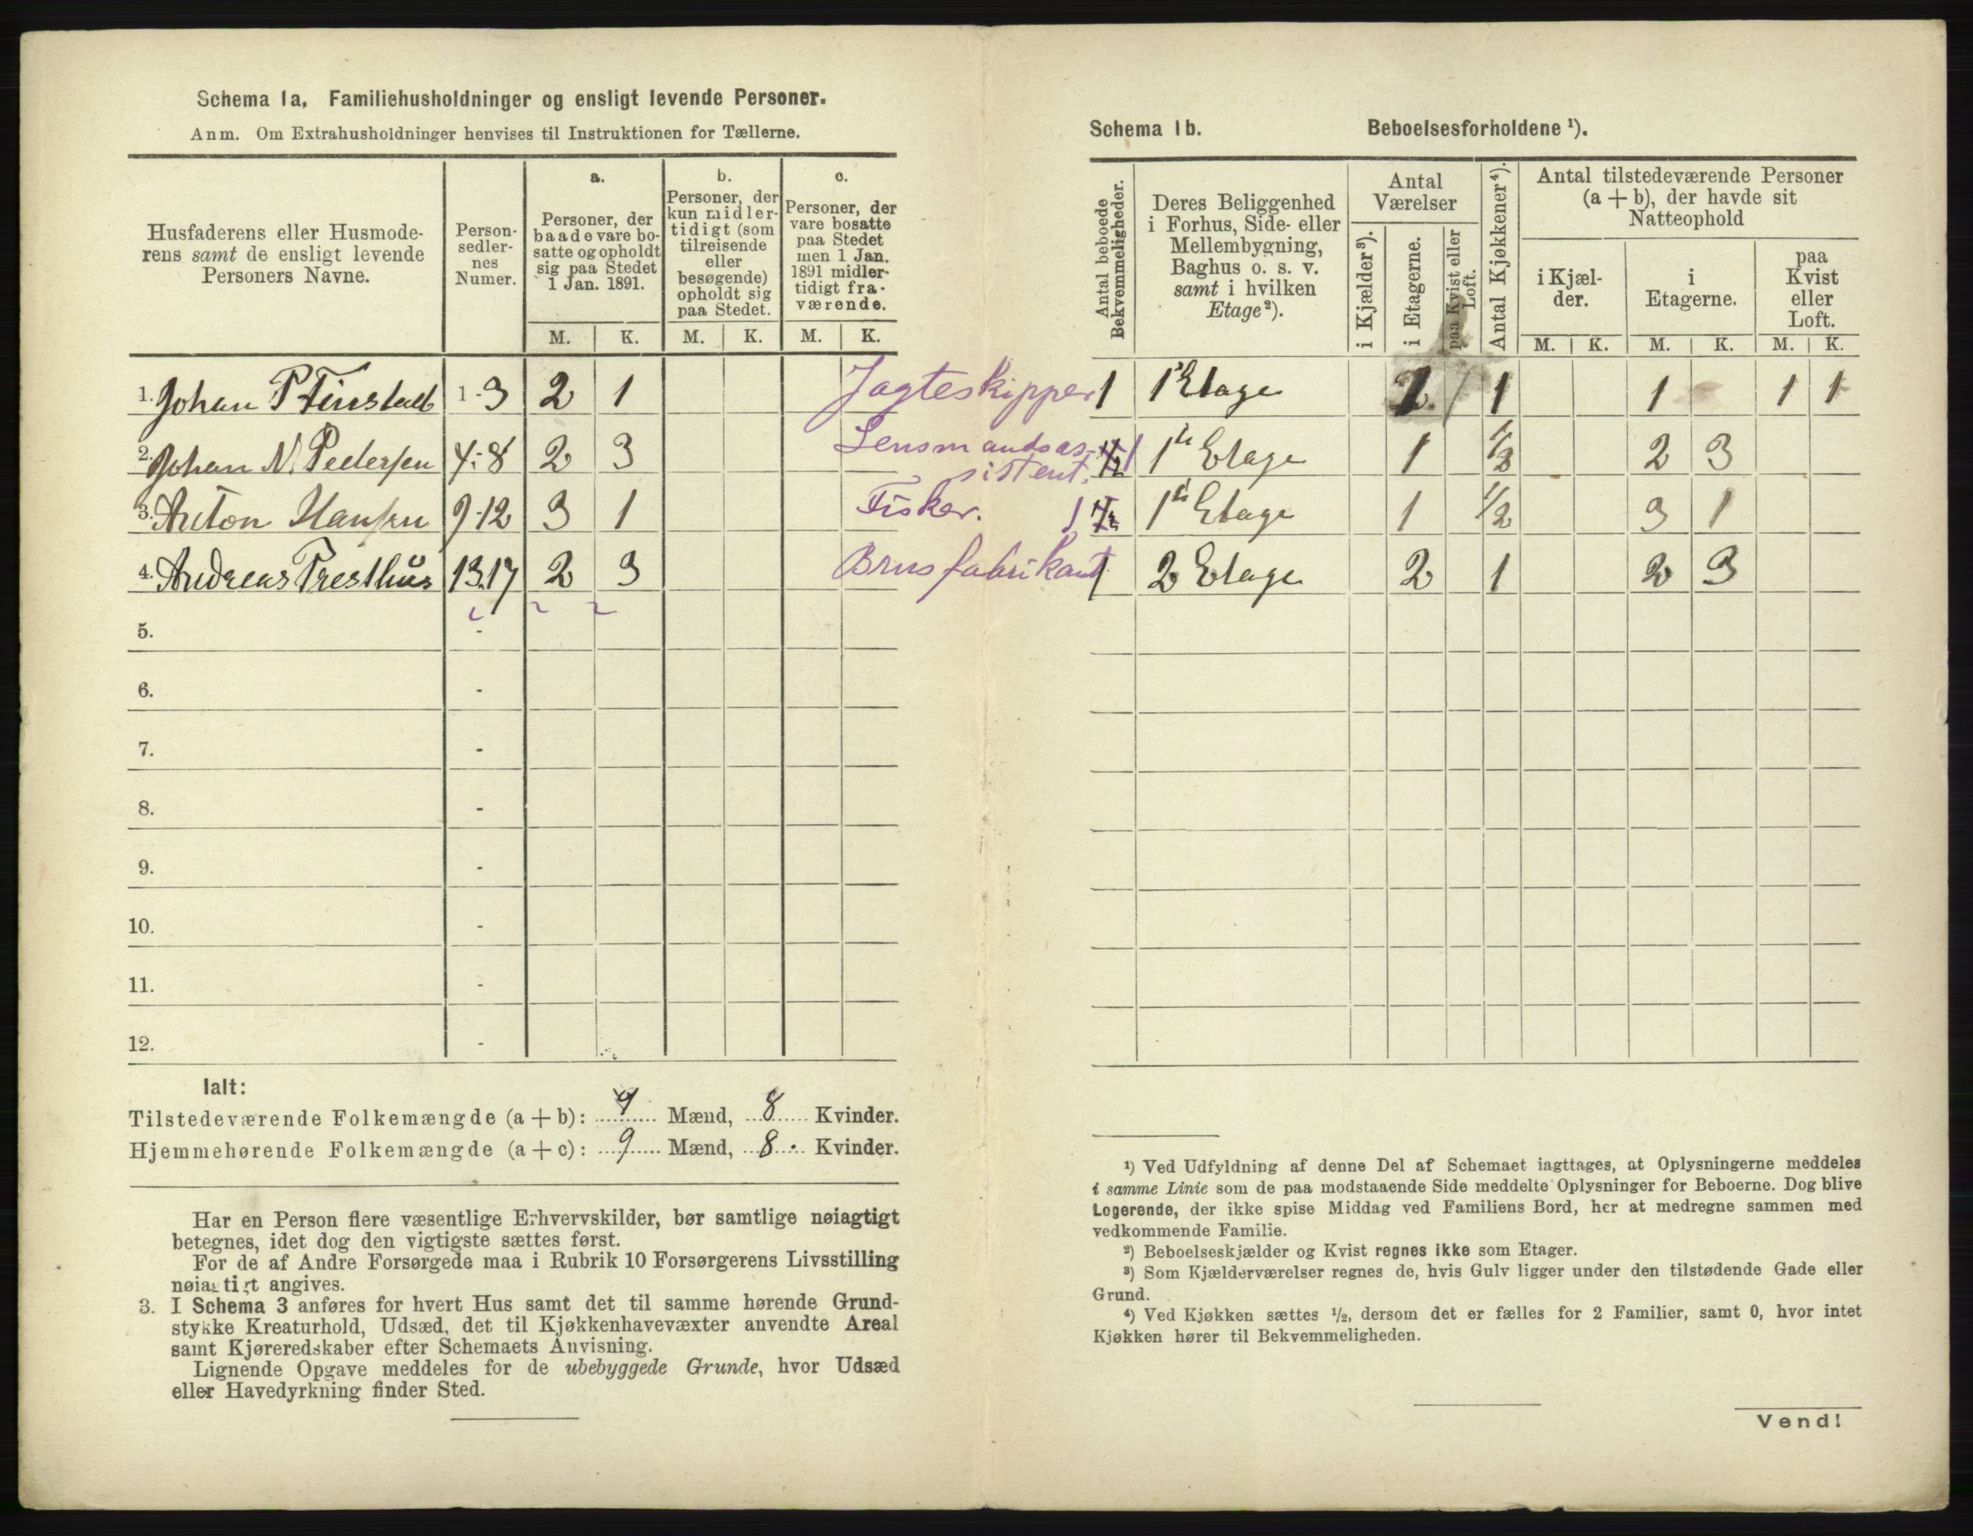 Schema 1a. Familiehusholdninger og ensligt levende Personer.
Anm. Om Extrahusholdninger henvises til Instruktionen for Tællerne.
Husfaderens eller Husmoderens samt de ensligt levende Personers Navne.
Person-sedler-nes Numer.
a. Personer, der baade vare bosatte og opholdt sig paa Stedet 1 Jan. 1891.
b. Personer, der kun midlertidigt (som tilreisende eller besøgende) opholdt sig paa Stedet.
c. Personer, der vare bosatte paa Stedet men 1 Jan. 1891 midlertidigt fraværende.
M. K. M. K. M. K.
1. Johan P Finstad 1-3 2 1 Jagteskipper
2. Johan N. Pedersen 4-8 2 3 Lensmandsassistent.
3. Anton Hansen 9-12 3 1 Fisker.
4. Andreas Presthus 13-17 2 3 Brusfabrikant
5. -
6. -
7. -
8. -
9. -
10. -
11. -
12. -
Ialt:
Tilstedeværende Folkemængde (a + b): 9 Mænd, 8 Kvinder.
Hjemmehørende Folkemængde (a + c): 9 Mænd, 8 Kvinder.
Har en Person flere væsentlige Erhvervskilder, bør samtlige nøiagtigt
betegnes, idet dog den vigtigste sættes først.
For de af Andre Forsørgede maa i Rubrik 10 Forsørgerens Livsstilling
nøiagtigt angives.
3. I Schema 3 anføres for hvert Hus samt det til samme hørende Grund-
stykke Kreaturhold, Udsæd, det til Kjøkkenhavevæxter anvendte Areal
samt Kjøreredskaber efter Schemaets Anvisning.
Lignende Opgave meddeles for de ubebyggede Grunde, hvor Udsæd
eller Havedyrkning finder Sted.
Schema 1b. Beboelsesforholdene ¹).
Antal beboede Bekvemmeligheder.
Deres Beliggenhed i Forhus, Side- eller Mellembygning, Baghus o. s. v. samt i hvilken Etage ²).
Antal Værelser
i Kjælder ³).
i Etagerne.
paa Kvist eller Loft.
Antal Kjøkkener ⁴).
Antal tilstedeværende Personer (a + b), der havde sit Natteophold
i Kjælder.
i Etagerne.
paa Kvist eller Loft.
M. K. M. K. M. K.
1 1 Etage 1 1 1 1 1
1 1ste Etage 1 1/2 2 3
1 1ste Etage 1 1/2 3 1
1 2 Etage 2 1 2 3
¹) Ved Udfyldning af denne Del af Schemaet iagttages, at Oplysningerne meddeles
i samme Linie som de paa modstaaende Side meddelte Oplysninger for Beboerne. Dog blive
Logerende, der ikke spise Middag ved Familiens Bord, her at medregne sammen med
vedkommende Familie.
²) Beboelseskjælder og Kvist regnes ikke som Etager.
³) Som Kjælderværelser regnes de, hvis Gulv ligger under den tilstødende Gade eller
Grund.
⁴) Ved Kjøkken sættes ½, dersom det er fælles for 2 Familier, samt 0, hvor intet
Kjøkken hører til Bekvemmeligheden.
Vend!